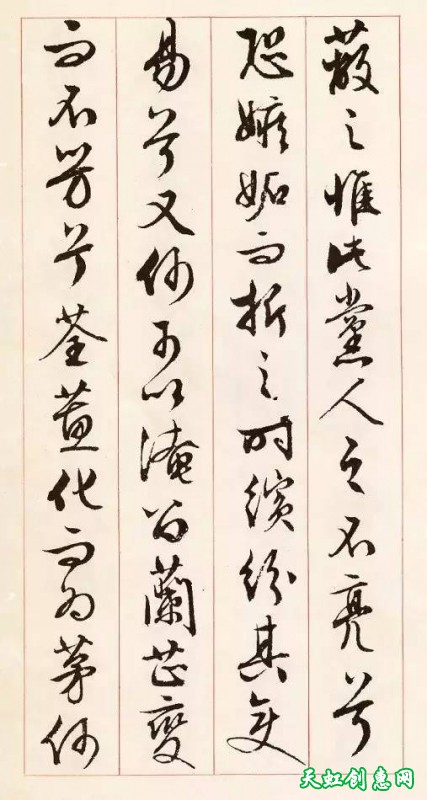 蔽之惟此黨人之不亮兮
恐嫉妬而折之时繽紛其変
易兮又何可以淹留蘭芷變
而不芳兮荃蕙化而為茅何
天虹创惠网